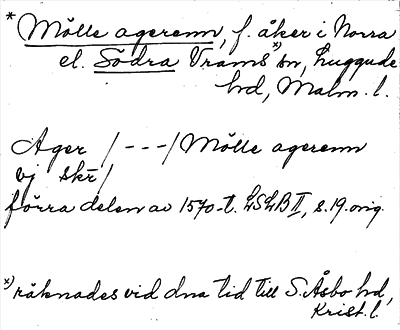 * Mölle agerenn, f. åker i Norra
el. Södra Vrams *) sn, Luggude
hd, Malm. l.
Ager /---/ Mölle agerenn
vj skr/
förra delen av 1570-t. LSLB II, s. 19. orig.
*) räknades vid dna tid till S. Åsbo hd,
Krist. l.